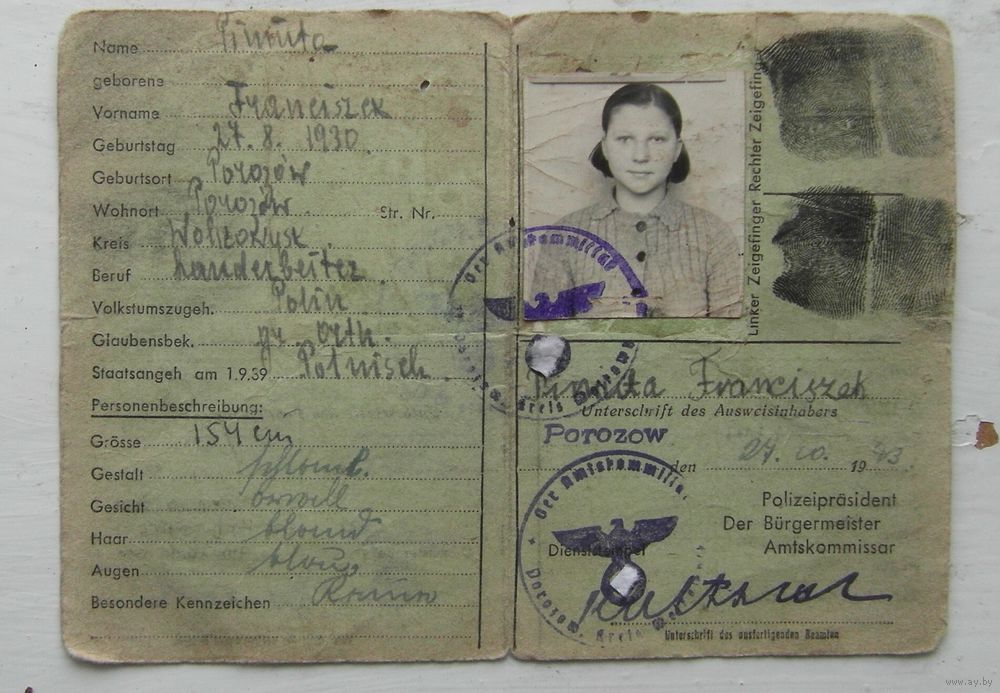 Name Pimuta
geborene
Vorname Franciszek
Geburtstag 27. 8. 1930
Geburtsort Porozów
Wohnort Porozów Str. Nr.
Kreis
Beruf Landarbeiter
Volkstumszugeh. Polin
Glaubensbek. gr. orth.
Staatsangeh am 1.9.39 Polnisch
Personenbeschreibung:
Grösse 154 cm
Gestalt schlank.
Gesicht
Haar blond
Augen blau
Besondere Kennzeichen
Linker Zeigefinger Rechter Zeigefinger
Der Amtskommissar
Pimuta Franciszek
Unterschrift des Ausweisinhabers
Porozow
den 27. 10. 1943.
Polizeipräsident
Der Bürgermeister
Amtskommissar
Der Amtskommissar
Dienststempel
Kreis
Unterschrift des ausfertigenden Beamten
www.ay.by